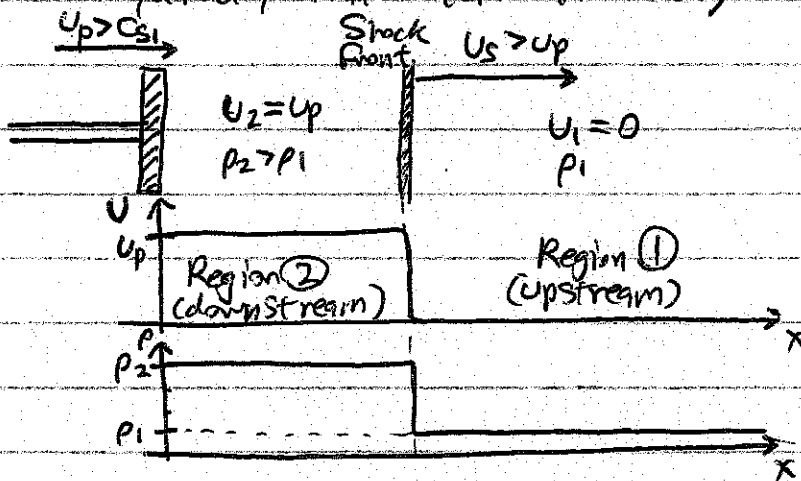 U_p > C_{S1}
Shock
Front
U_S > U_p
U_2 = U_p
ρ_2 > ρ_1
U_1 = 0
ρ_1
U
U_p
Region ②
(downstream)
Region ①
(Upstream)
x
ρ
ρ_2
ρ_1
x